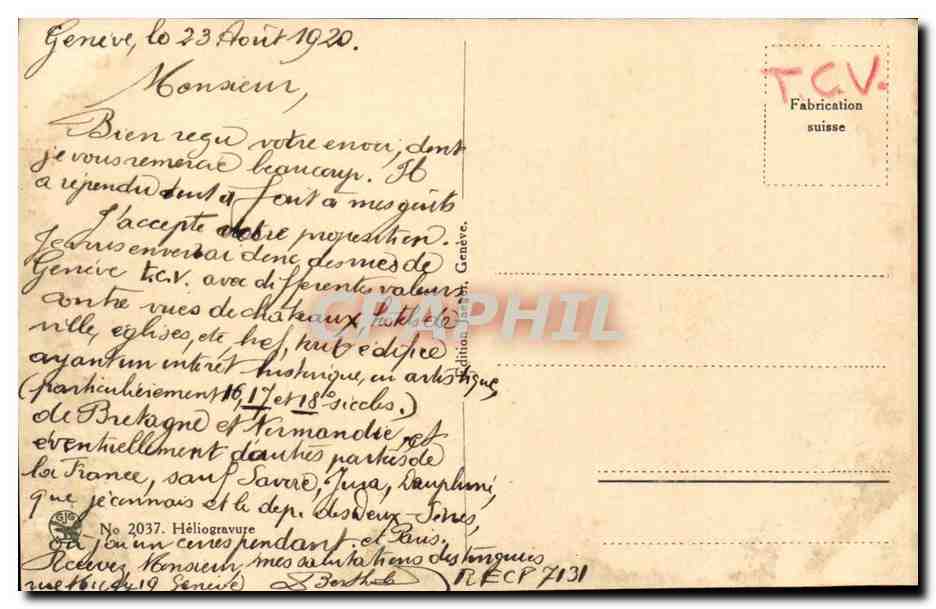 Genève, le 23 Août 1920.
Monsieur,
Bien reçu votre envoi, dont
je vous remercie beaucoup. Il
a répondu tout à fait à mes goûts
J'accepte votre proposition.
Je vous enverrai donc des vues de
Genève t.c.v. avec differentes valeurs
contre vues de châteaux, hotels de
ville, églises, etc bref, tout édifice
ayant un intérêt historique, ou artistique
(particulièrement 16, 17 et 18e siècles.)
de Bretagne et Normandie, et
éventuellement d'autres parties de
la France, sauf Savoie, Jura, Dauphiné,
que je connais et le dep. des Deux-Sèvres,
où j'ai un correspondant. et Paris.
Recevez Monsieur, mes salutations distinguées
rue 19 Genève
RECP 7131
T.C.V.
Fabrication
suisse
Edition Jaeger, Genève.
CPAPHIL
GJG
No 2037. Héliogravure